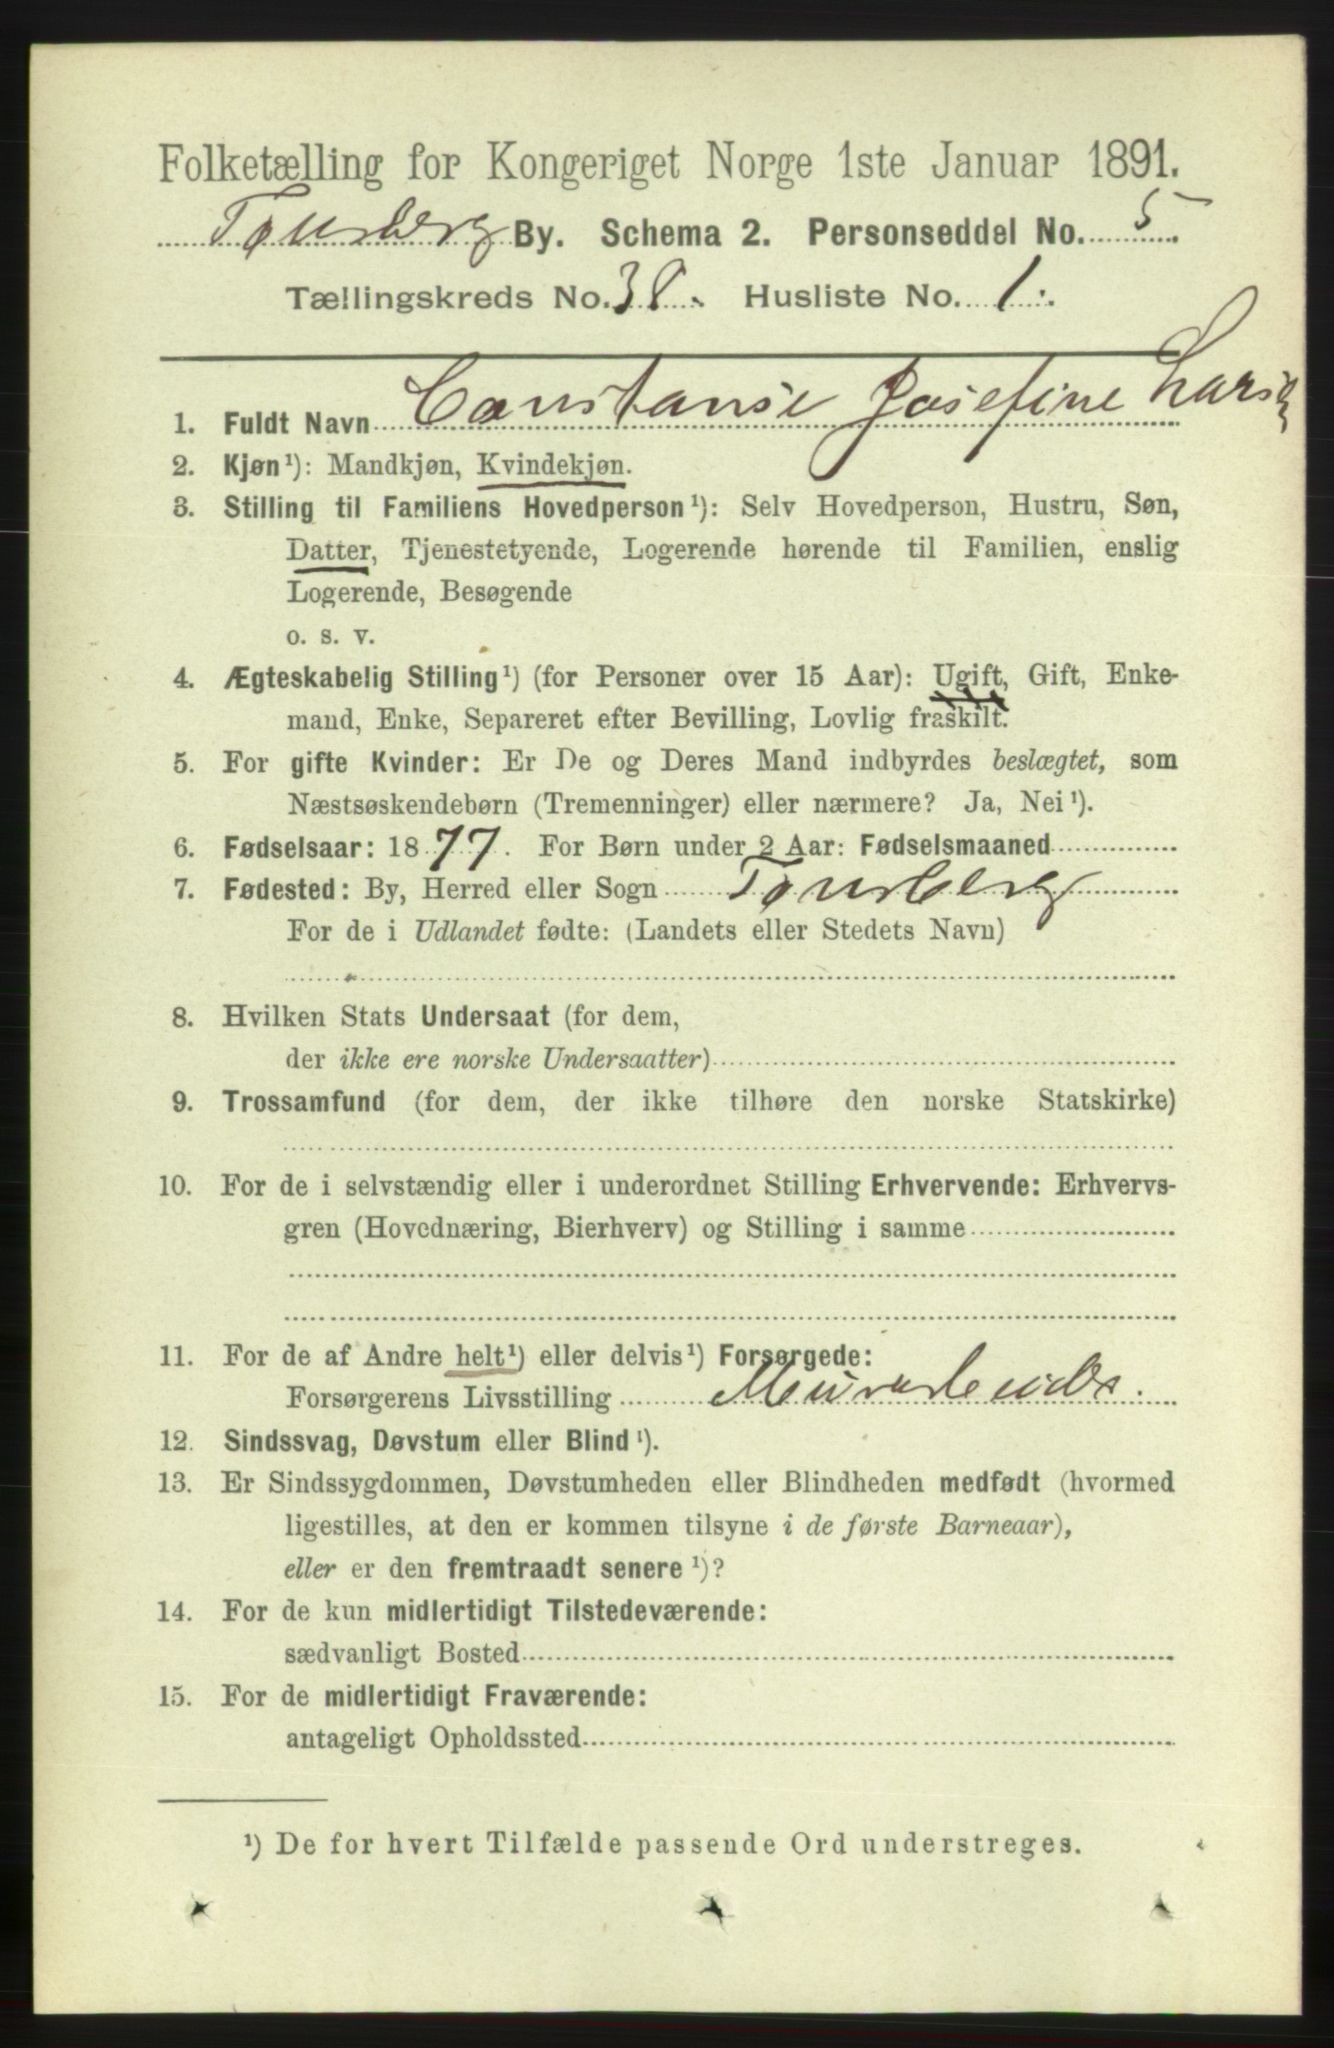 Folketælling for Kongeriget Norge 1ste Januar 1891.
Tønsberg By. Schema 2. Personseddel No. 5
Tællingskreds No. 38. Husliste No. 1.
1. Fuldt Navn Constanse Josefine Larsen
2. Kjøn¹): Mandkjøn, Kvindekjøn.
3. Stilling til Familiens Hovedperson¹): Selv Hovedperson, Hustru, Søn,
Datter, Tjenestetyende, Logerende hørende til Familien, enslig
Logerende, Besøgende
o. s. v.
4. Ægteskabelig Stilling¹) (for Personer over 15 Aar): Ugift, Gift, Enke-
mand, Enke, Separeret efter Bevilling, Lovlig fraskilt.
5. For gifte Kvinder: Er De og Deres Mand indbyrdes beslægtet, som
Næstsøskendebørn (Tremenninger) eller nærmere? Ja, Nei¹).
6. Fødselsaar: 1877. For Børn under 2 Aar: Fødselsmaaned
7. Fødested: By, Herred eller Sogn Tønsberg
For de i Udlandet fødte: (Landets eller Stedets Navn)
8. Hvilken Stats Undersaat (for dem,
der ikke ere norske Undersaatter)
9. Trossamfund (for dem, der ikke tilhøre den norske Statskirke)
10. For de i selvstændig eller i underordnet Stilling Erhvervende: Erhvervs-
gren (Hovednæring, Bierhverv) og Stilling i samme
11. For de af Andre helt¹) eller delvis¹) Forsørgede:
Forsørgerens Livsstilling
12. Sindssvag, Døvstum eller Blind¹).
13. Er Sindssygdommen, Døvstumheden eller Blindheden medfødt (hvormed
ligestilles, at den er kommen tilsyne i de første Barneaar),
eller er den fremtraadt senere¹)?
14. For de kun midlertidigt Tilstedeværende:
sædvanligt Bosted
15. For de midlertidigt Fraværende:
antageligt Opholdssted
¹) De for hvert Tilfælde passende Ord understreges.